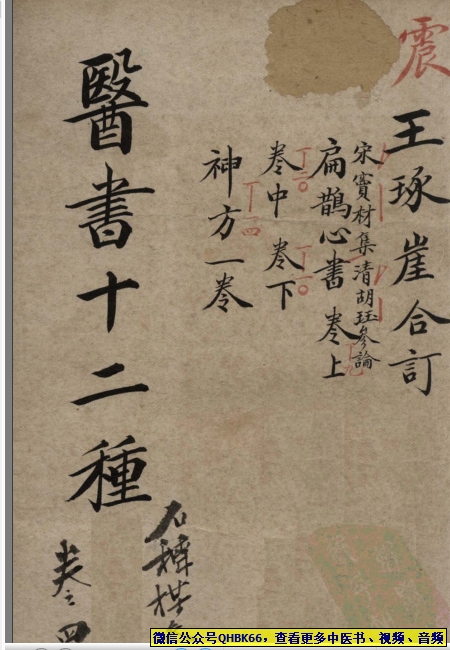 震
王琢崖合訂
宋竇材集清胡珏參論
扁鵲心書 卷上
卷中 卷下
神方一卷
醫書十二種
卷之四
微信公众号QHBK66，查看更多中医书、视频、音频